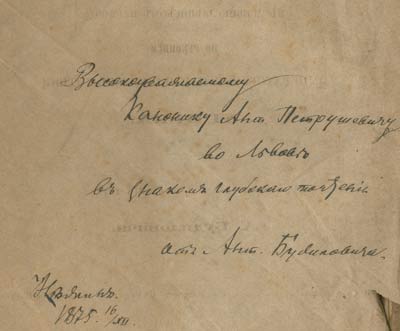 Высокоуважаемому
Канонику Ант. Петрушевичу
во Львовѣ
въ знакъ глубокаго почтенія
отъ Ант. Будиловича.
Нѣжинъ.
1875. 16/XII.